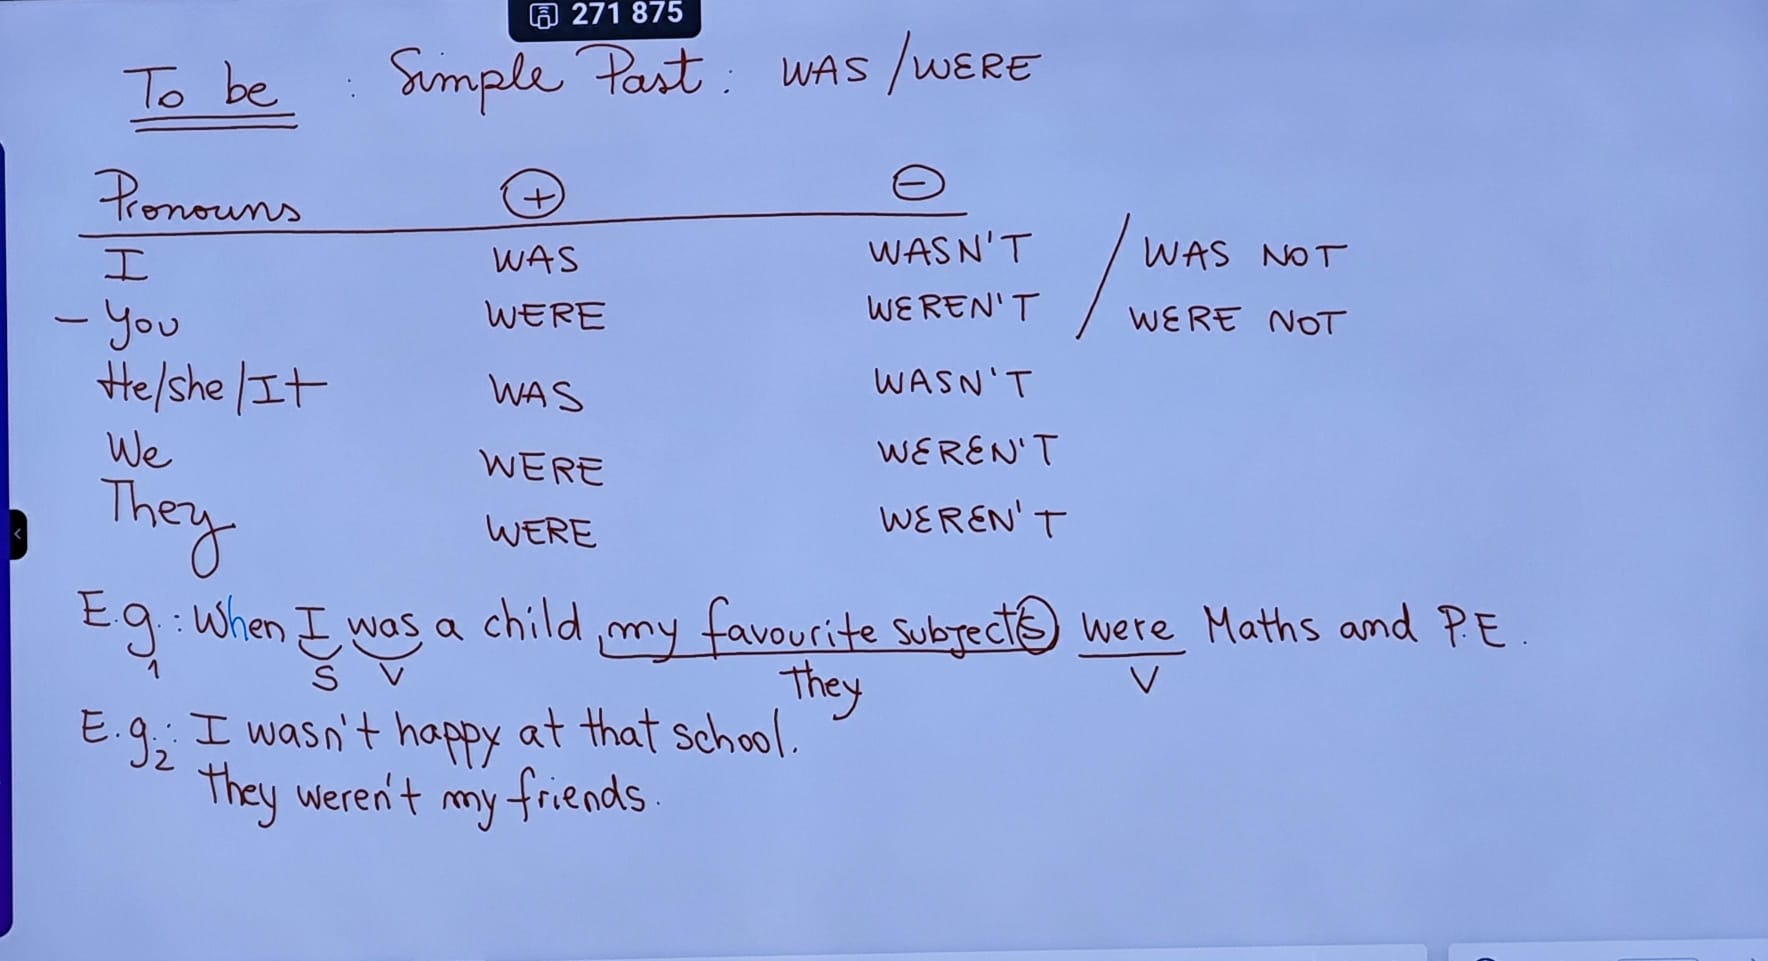 271 875
To be : Simple Past : WAS / WERE
Pronouns + −
I WAS WASN'T / WAS NOT
- You WERE WEREN'T / WERE NOT
He/she/It WAS WASN'T
We WERE WEREN'T
They WERE WEREN'T
E.g.1: When I was a child, my favourite subjects were Maths and P.E.
S V They V
E.g.2: I wasn't happy at that school.
They weren't my friends.